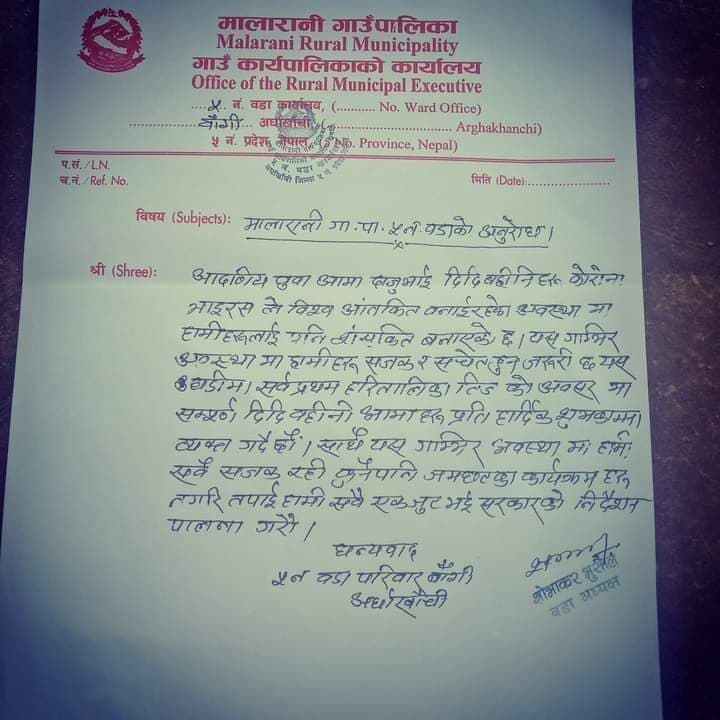 मालारानी गाउँपालिका
Malarani Rural Municipality
गाउँ कार्यपालिकाको कार्यालय
Office of the Rural Municipal Executive
....५.. नं. वडा कार्यालय, (........... No. Ward Office)
बाँगी अर्घाखाँची Arghakhanchi)
५ नं. प्रदेश, नेपाल No. Province, Nepal)
प.सं./LN.
च.नं./Ref. No.
मिति (Date):......................
विषय (Subjects): मालारानी गा.पा. ५ नं. वडाको अनुरोध।
श्री (Shree): आदरणिय बुवा आमा दाजुभाई दिदि बहीनिहरु कोरोना
भाइरस ले विश्व आंतकित बनाईरहेको अवस्था मा
हामीहरुलाई पनि बनाएको छ। यस गाम्भिर
अवस्था मा हामीहरु सजक र सचेत हुन जरुरी छ यस
घडीमा। सर्व प्रथम हरितालिका तिज को अवसर मा
सम्पूर्ण दिदि बहीनी आमाहरु प्रति हार्दिक शुभकामना
व्यक्त गर्दै छौं। साथै यस गाम्भिर अवस्था मा हामी
सवै सजक रही कुनैपानि जमघटका कार्यक्रम हरु
नगरि तपाई हामी सवै एकजुट भई सरकारको निर्देशन
पालना गरौं।
धन्यवाद
५ नं वडा परिवार बाँगी
अर्घाखाँची
शोभाकर भुसाल
वडा अध्यक्ष